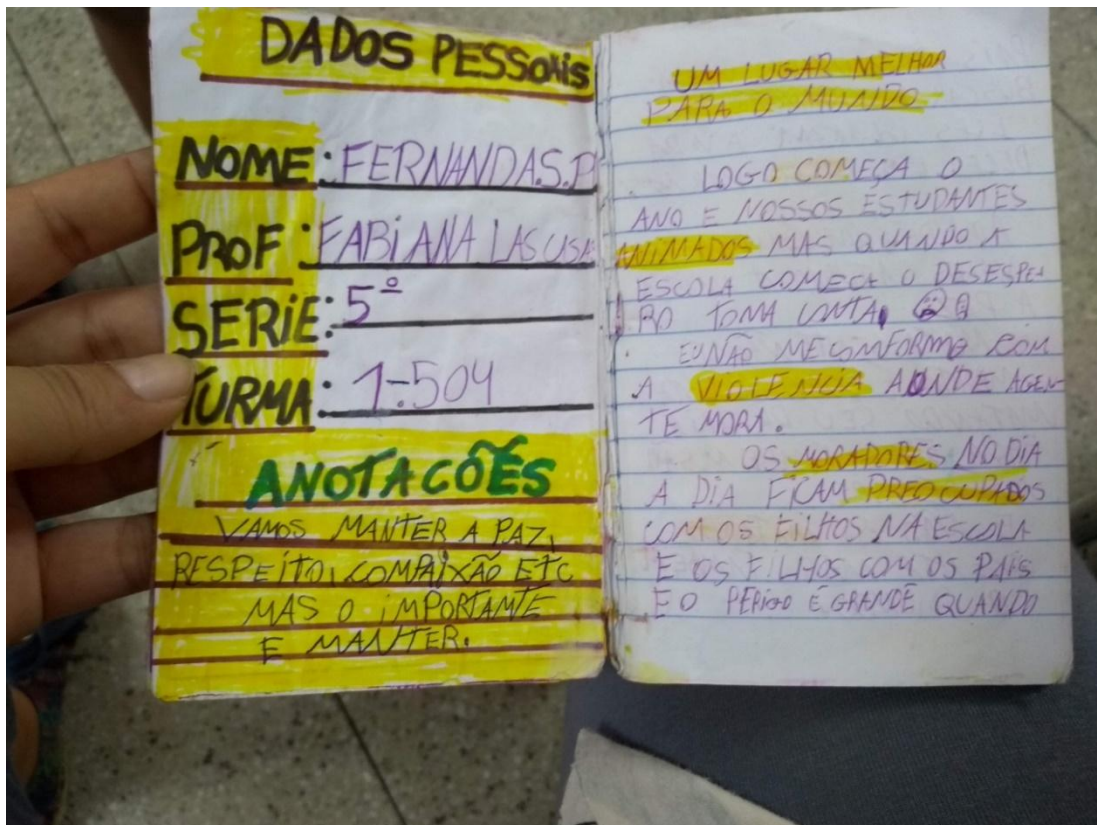 DADOS PESSOAIS
NOME: FERNANDA.S.P
PROF: FABIANA LAS CUSA
SERIE: 5º
TURMA: 1-504
ANOTACÕES
VAMOS MANTER A PAZ,
RESPEITO, COMPAIXÃO ETC
MAS O IMPORTANTE
E MANTER.
UM LUGAR MELHOR
PARA O MUNDO
LOGO COMEÇA O
ANO E NOSSOS ESTUDANTES
ANIMADOS MAS QUANDO A
ESCOLA COMEÇA O DESESPE-
RO TOMA CONTA,
EU NÃO ME COMFORMO COM
A VIOLENCIA AONDE AGEN-
TE MORA.
OS MORADORES NO DIA
A DIA FICAM PREOCUPADOS
COM OS FILHOS NA ESCOLA
E OS FILHOS COM OS PAIS
E O PERIGO É GRANDE QUANDO